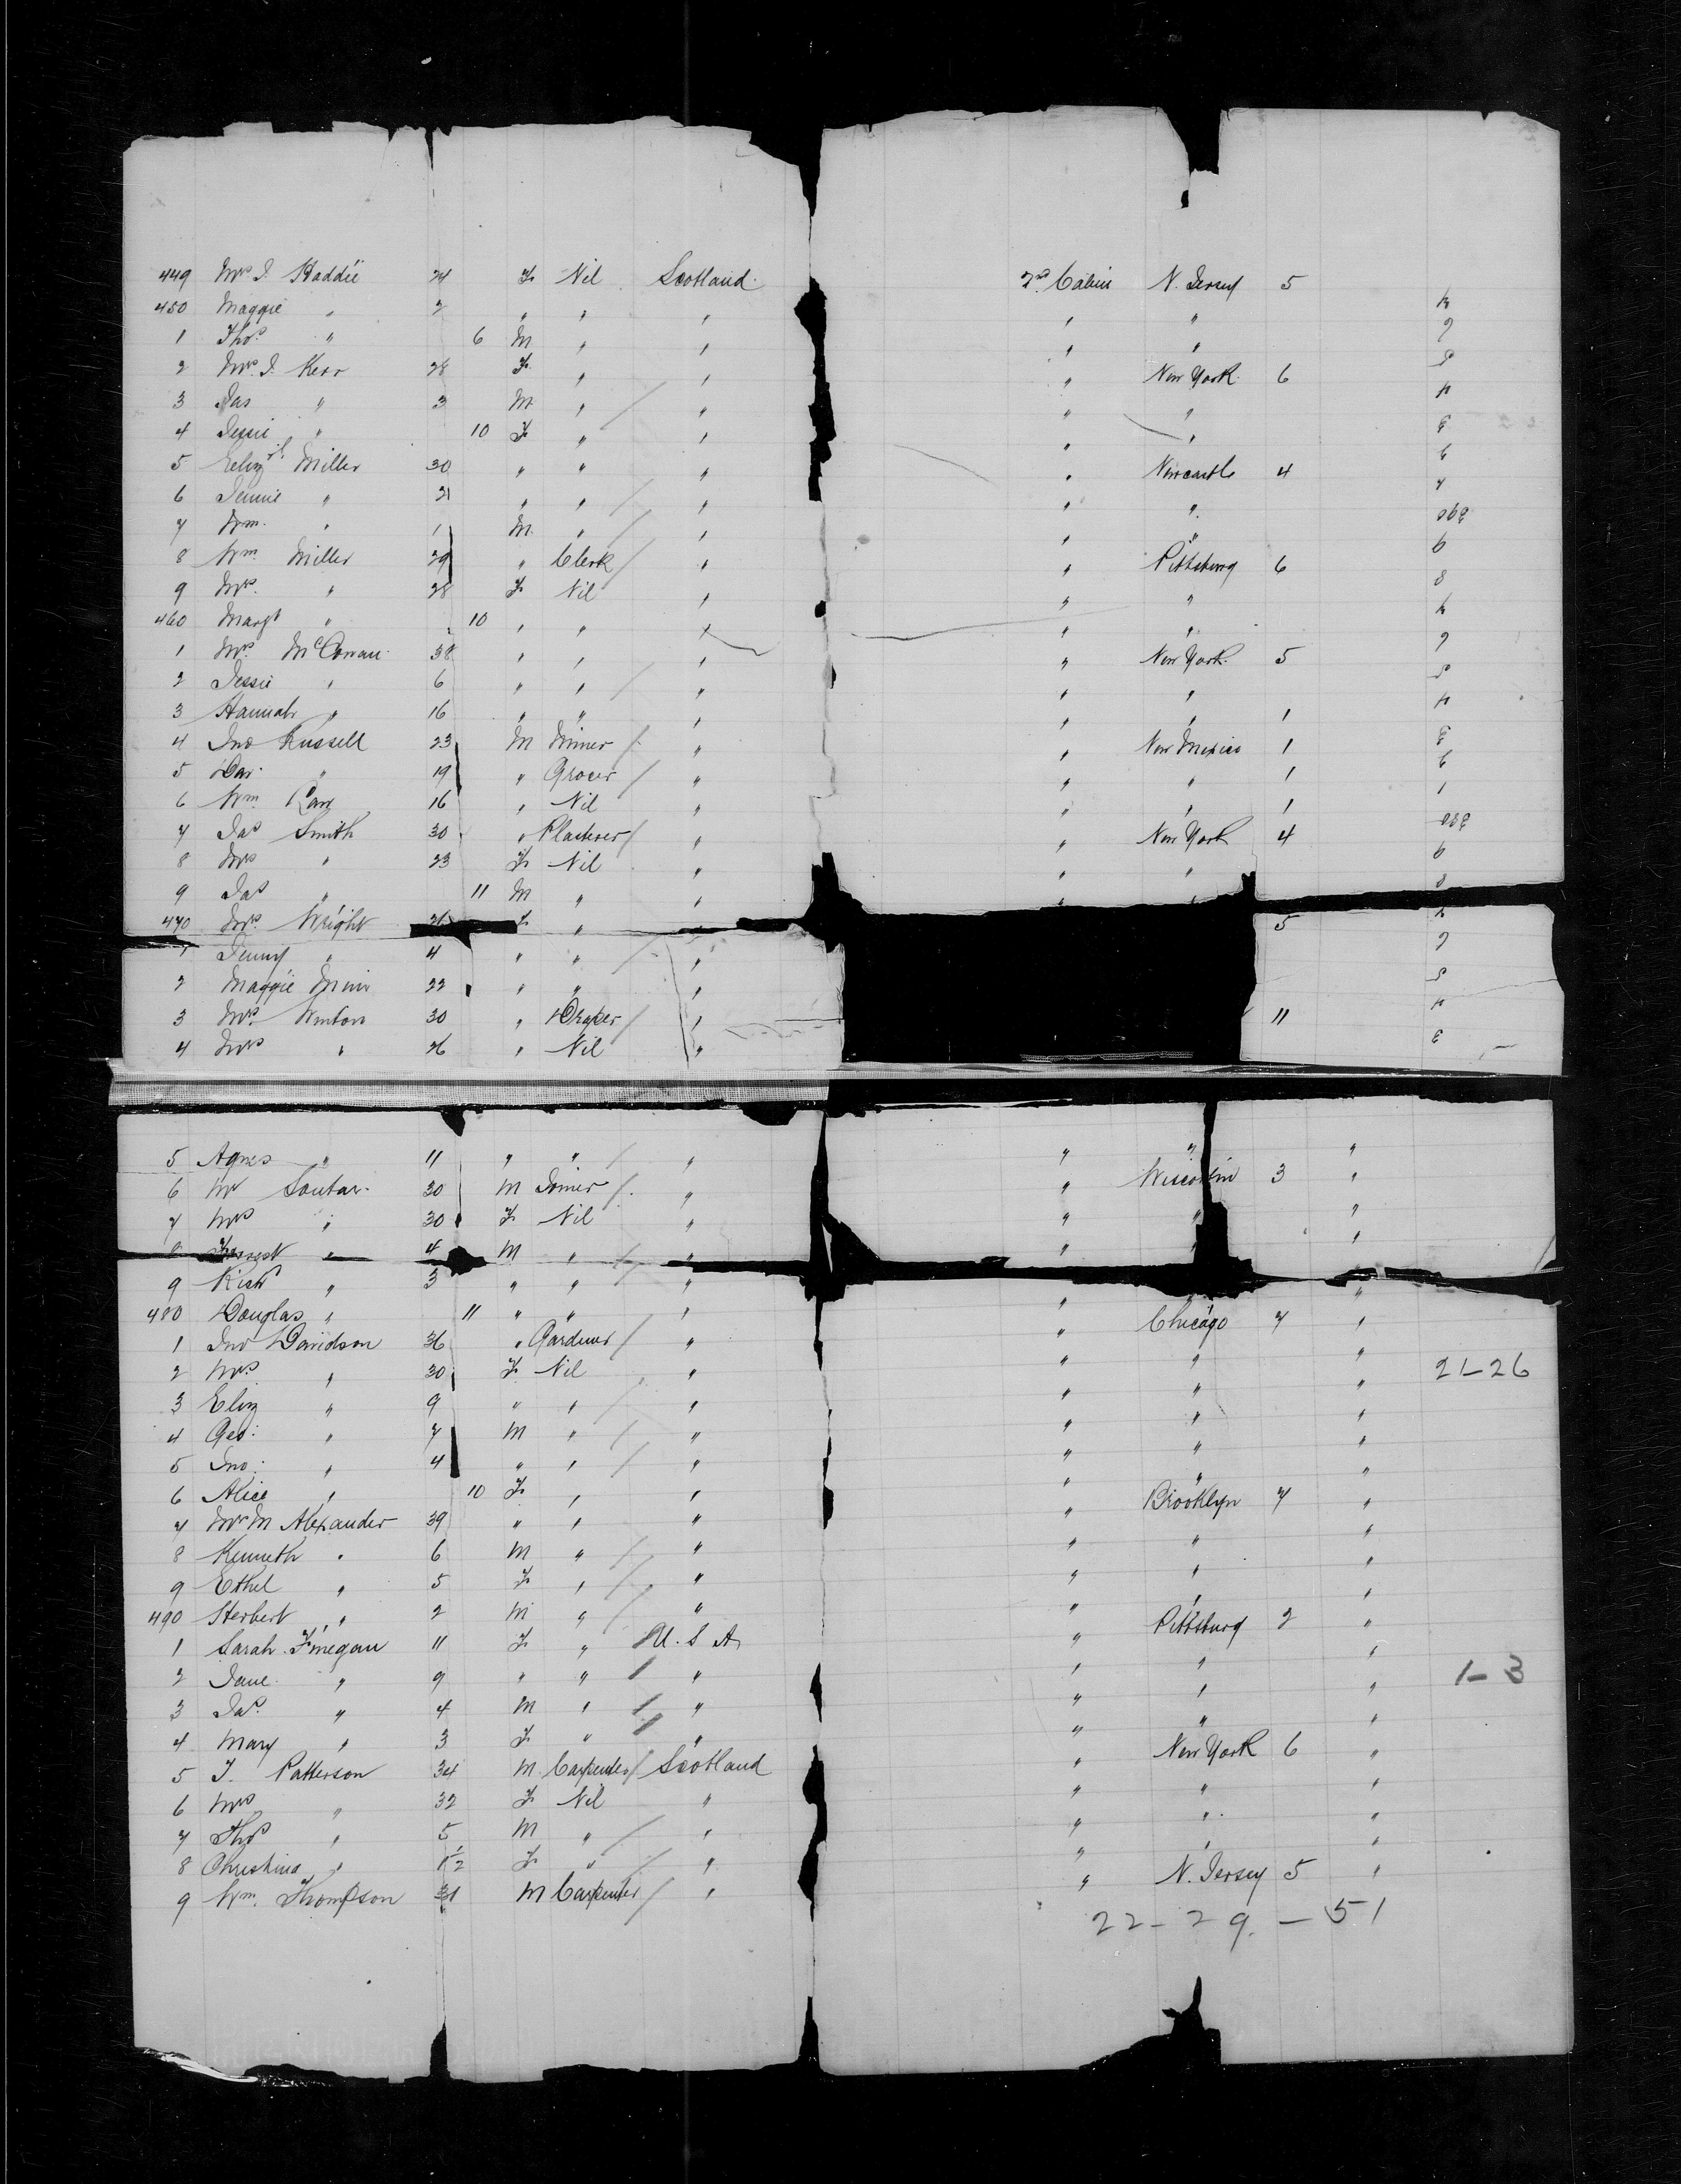 449 Mrs J. Haddie 24 F Nil Scotland. 2nd Cabin N. Jersey 5
450 Maggie " 2 " " " " "
1 Thos " 6 M " " " "
2 Mrs. J. Kerr 28 F. " " " New York. 6
3 Jas " 3 M " " " "
4 Jessie " 10 F " " " "
5 Eliz Miller 30 " " " " Newcastle 4
6 Jennie " 21 " " " " "
7 Wm. " 1 M. " " " "
8 Wm Miller 29 " Clerk " " Pittsburg 6
9 Mrs. " 28 F Nil " " "
460 Margt " 10 " " " " "
1 Mrs. McCowan 38 " " " " New York. 5
2 Jessie " 6 " " " " "
3 Hannah " 16 " " " " " 1
4 Jno Russell 23 M Miner " " New Mexico 1
5 Dav. " 19 " Grocer " " " 1
6 Wm. 16 " Nil " " " 1
7 Jas Smith 30 " Plasterer " " New York 4
8 Mrs " 23 F Nil " " "
9 Jas " 11 M " " " "
470 Mrs. Wright F " 5
1 Jenny " 4 " " "
2 Maggie 22 " " "
3 Mrs. Winton 30 " Draper " 11
4 Mrs " 26 " Nil "
5 Agnes " 11 " " " " " "
6 Mr Soutar. 30 M Joiner " " Wisconsin 3 "
7 Mrs " 30 F Nil " " " "
8 Forrest " 4 M " " " " "
9 " 3 " " " " "
480 Douglas " 11 " " " " Chicago 7 "
1 Jno Davidson 36 " Gardener " " " "
2 Mrs " 30 F Nil " " " " 21-26
3 Eliz " 9 " " " " " "
4 Geo: " 7 M " " " " "
5 Jno: " 4 " " " " " "
6 Alice " 10 F " " " Brooklyn 7 "
7 Mrs M Alexander 39 " " " " " "
8 Kenneth " 6 M " " " " "
9 Ethel " 5 F " " " " "
490 Herbert " 2 M " " " Pittsburg 2 "
1 Sarah Finegan 11 F " U. S A. " " "
2 Jane " 9 " " " " " " 1-3
3 Jas. " 4 M " " " " "
4 Mary " 3 F " " " New York 6 "
5 J. Patterson 34 M. Carpenter Scotland " " "
6 Mrs " 32 F Nil " " " "
7 Thos " 5 M " " " " "
8 Christina " 1½ F " " " N. Jersey 5 "
9 Wm. Thompson 31 M Carpenter "
22-29.-51